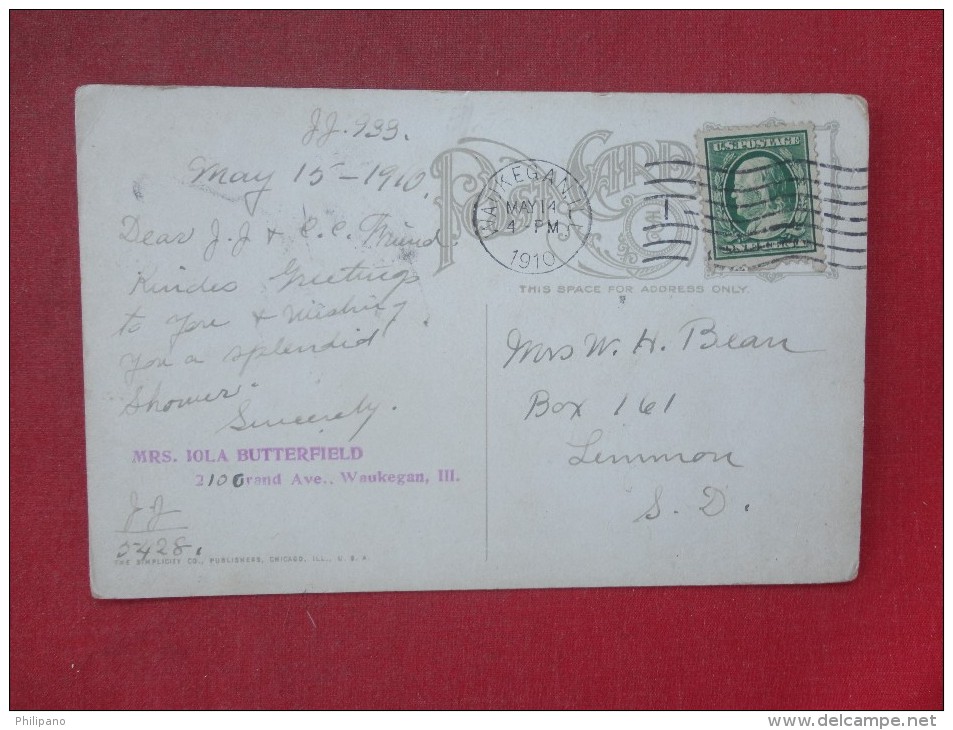 J.J. 933.
May 15-1910.
Dear J.J & C.C. Friend.
Kindes Greetings
to You & Wishing
You a splendid
"Shower"
Sincerely.
MRS. IOLA BUTTERFIELD
210 Grand Ave., Waukegan, Ill.
J J
5428.
THE SIMPLICITY CO., PUBLISHERS, CHICAGO, ILL., U. S. A.
POST CARD
WAUKEGAN, ILL.
MAY 14
4 - PM
1910
U.S. POSTAGE
THIS SPACE FOR ADDRESS ONLY.
Mrs W. H. Bean
Box 161
Lemmon
S. D.
Philipano
www.delcampe.net